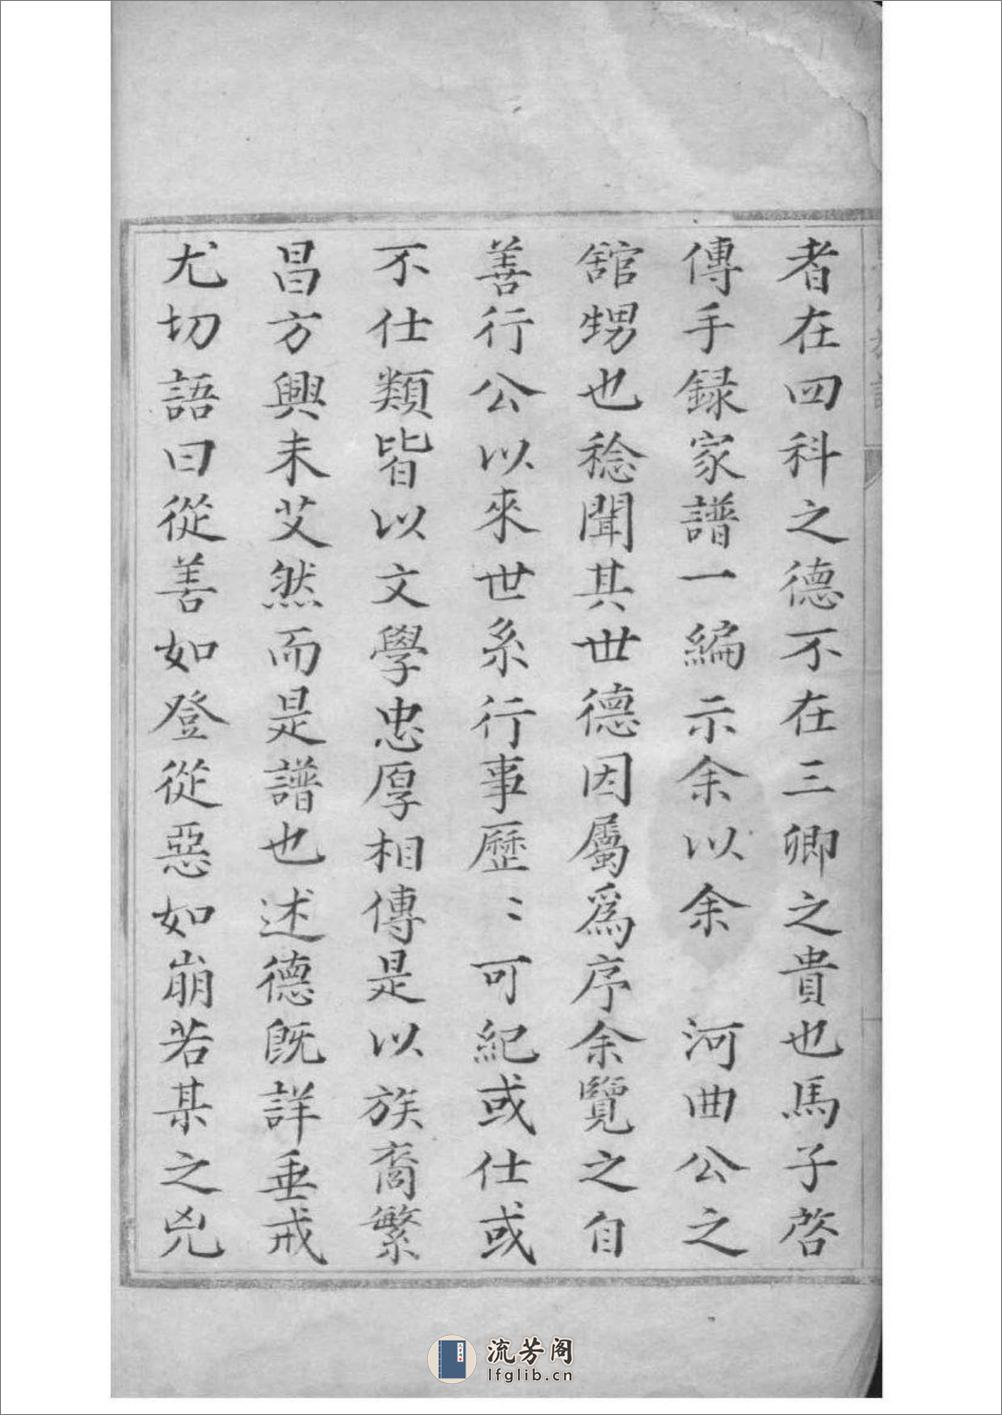 者在四科之德不在三卿之貴也馬子啓
傳手録家譜一編示余以余　河曲公之
舘甥也稔聞其世德因屬爲序余覽之自
善行公以來世系行事歷〻可紀或仕或
不仕類皆以文學忠厚相傳是以族裔繁
昌方興未艾然而是譜也述德旣詳垂戒
尤切語曰從善如登從惡如崩若某之兇
流芳阁
lfglib.cn